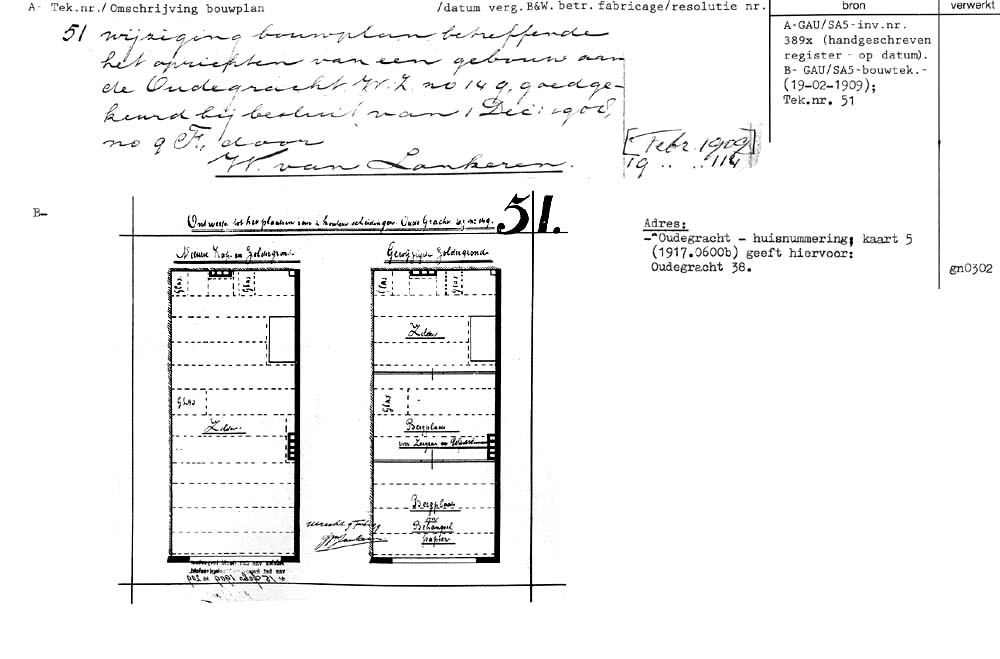 A- Tek.nr./Omschrijving bouwplan /datum verg.B&W. betr. fabricage/resolutie nr. bron verwerkt
51 wijziging bouwplan betreffende
het oprichten van een gebouw aan
de Oudegracht W.Z. no 149, goedge-
keurd bij besluit van 1 Dec: 1908,
no 9 F, door
W. van Lankeren.
[Febr. 1909]
19 .. .. 114
A-GAU/SA5-inv.nr.
389x (handgeschreven
register - op datum).
B- GAU/SA5-bouwtek.-
(19-02-1909);
Tek.nr. 51
B-
51.
Ontwerp tot het plaatsen van 2 houten scheidingen Oude Gracht wz no 149.
Adres:
-^Oudegracht - huisnummering; kaart 5
(1917.0600b) geeft hiervoor:
Oudegracht 38.
gn0302
Nieuwe Kap- en Zoldergrond
Gewijzigde Zoldergrond
Glas
Glas
Glas
Glas
Zolder
Glas
Glas
Zolder
Bergplaats
voor
Bergplaats
voor
Behangsel
papier